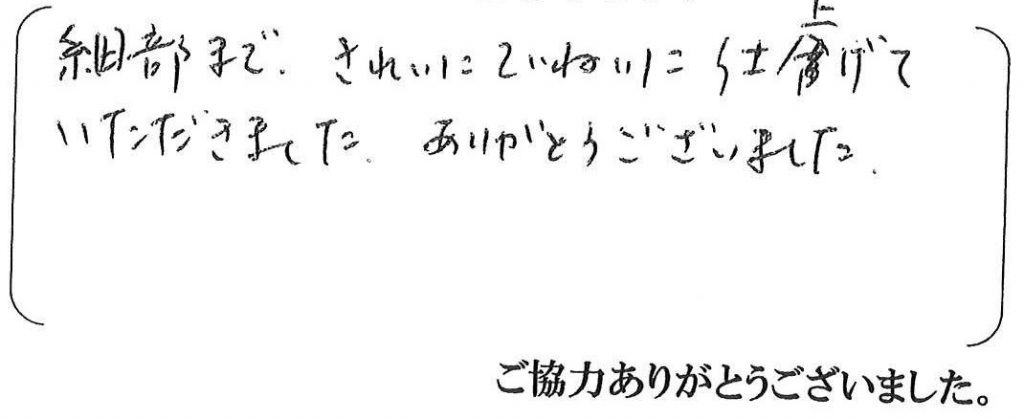 細部まで、きれいにていねいに仕上げて
いただきました。ありがとうございました。
ご協力ありがとうございました。